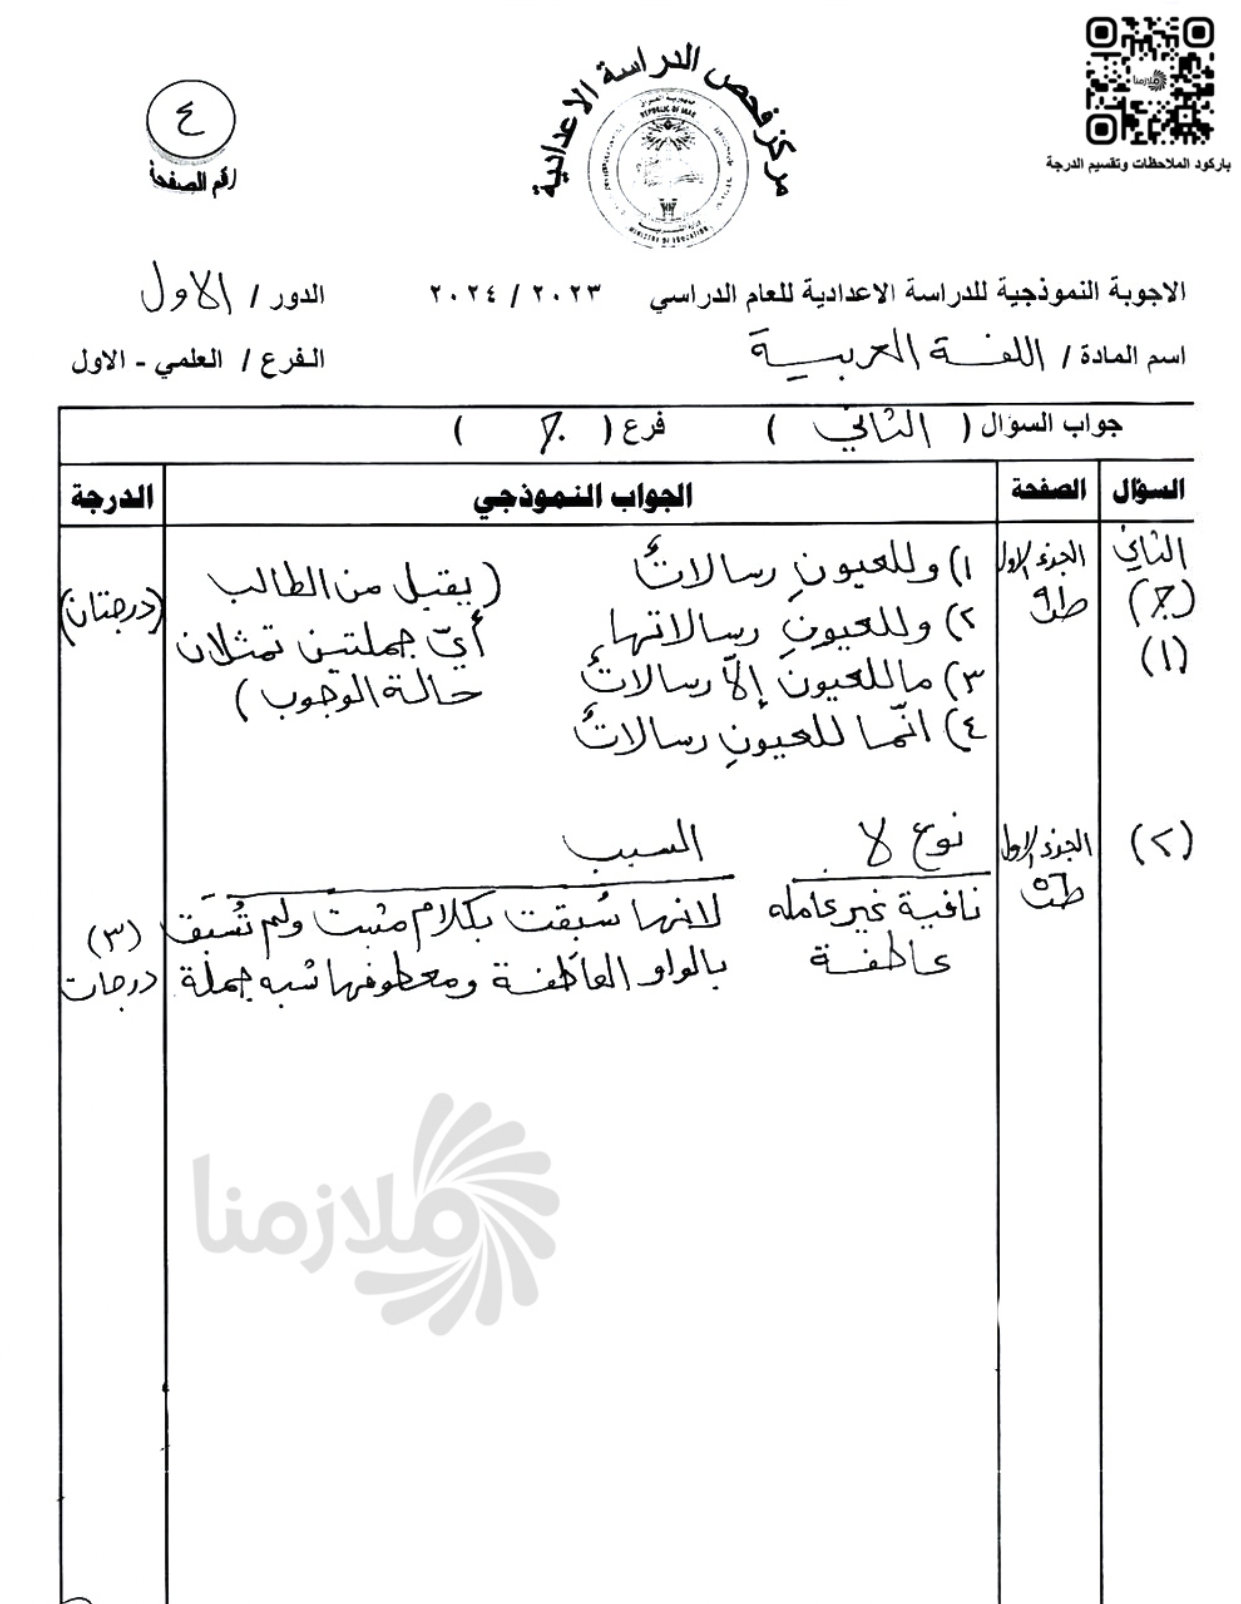 باركود الملاحظات وتقسيم الدرجة
مركز فحص الدراسة الاعدادية
REPUBLIC OF IRAQ
MINISTRY OF EDUCATION
٤
رقم الصفحة
الاجوبة النموذجية للدراسة الاعدادية للعام الدراسي ٢٠٢٣ / ٢٠٢٤ الدور / الاول
اسم المادة / اللغة العربية الفرع / العلمي - الاول
جواب السؤال ( الثاني ) فرع ( ج )
السؤال الصفحة الجواب النموذجي الدرجة
الثاني
(ج)
(١)
الجزء الاول
١) وللعيونِ رسالاتٌ
٢) وللعيونِ رسالاتها
٣) ما للعيونِ إلّا رسالاتٌ
٤) انّما للعيونِ رسالاتٌ
(يقبل من الطالب
أيّ جملتين تمثلان
حالة الوجوب)
(درجتان)
(٢)
الجزء الاول
نوع لا السبب
نافية غير عامله لانها سُبقت بكلام مثبت ولم تُسبَق
عاطفة بالواو العاطفة ومعطوفها شبه جملة
(٣)
درجات
ملازمنا